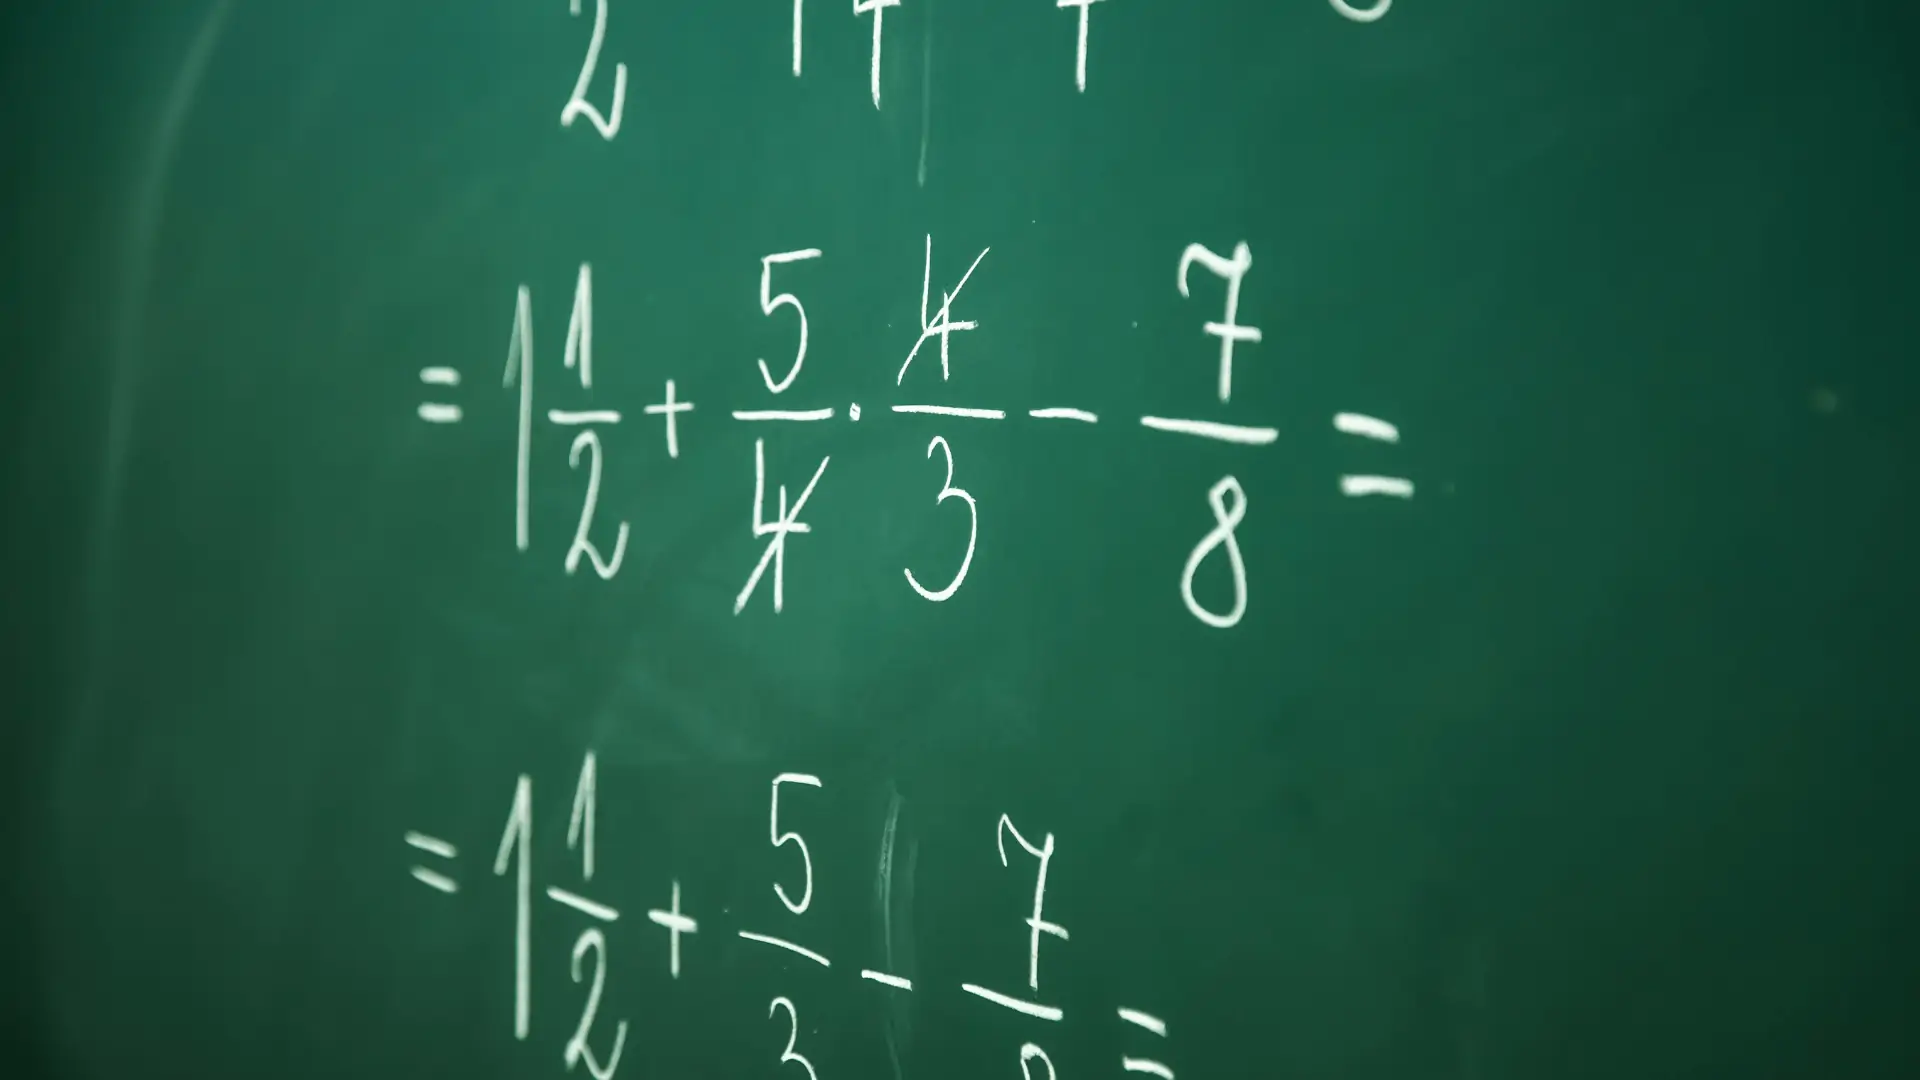 = 1 1/2 + 5/4 · 4/3 − 7/8 =
= 1 1/2 + 5/3 − 7/8 =